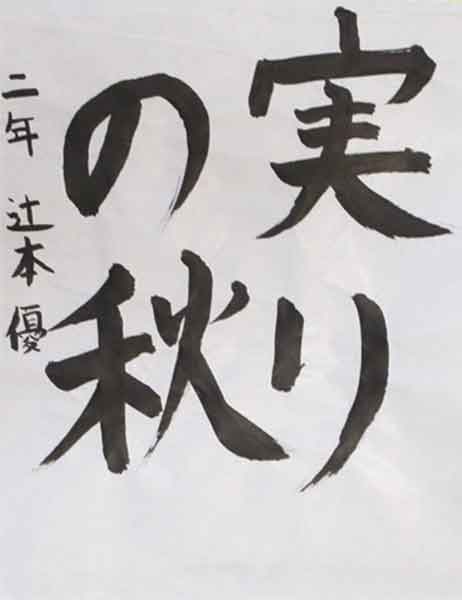 実り
の秋
二年 辻本 優